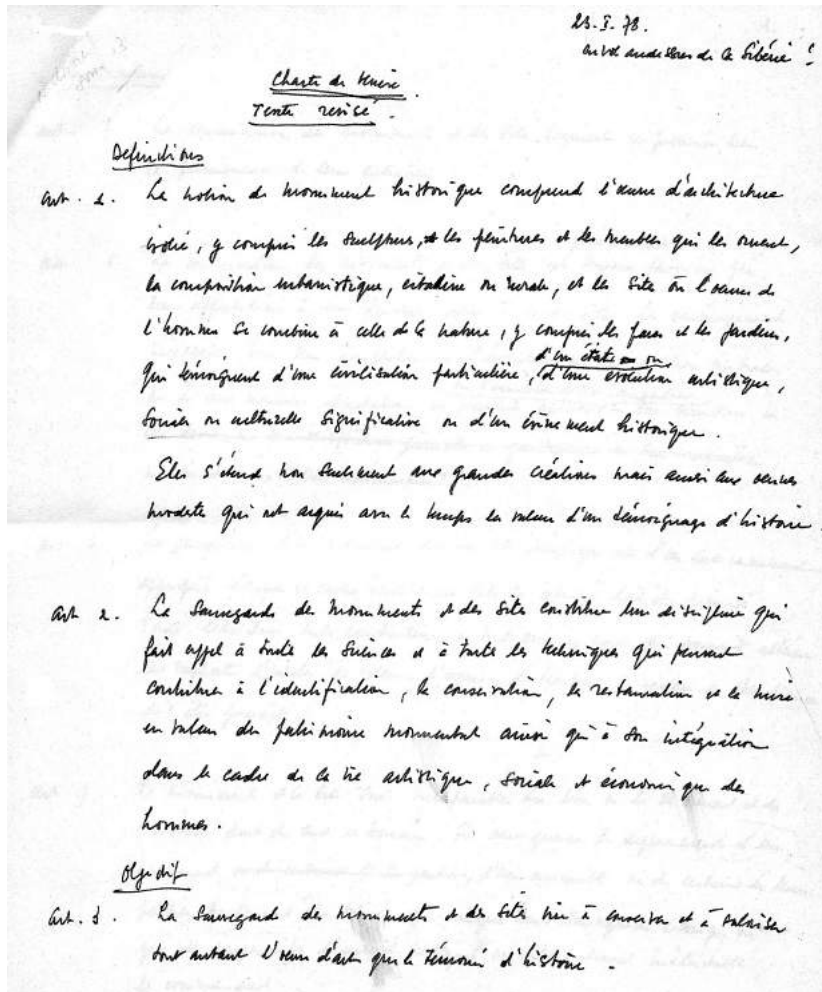 23.I.78.
en vol au dessus de la Sibérie !
Charte de Venise.
Texte revisé.
Definitions
Art. 1. La notion de monument historique comprend l'œuvre d'architecture
isolée, y compris les sculptures, les peintures et les meubles qui les ornent,
la composition urbanistique, citadine ou rurale, et les sites où l'œuvre de
l'homme se combine à celle de la nature, y compris les parcs et les jardins,
d'un état ou
qui témoignent d'une civilisation particulière, d'une évolution artistique,
sociale ou culturelle significative ou d'un évènement historique.
Elle s'étend non seulement aux grandes créations mais aussi aux œuvres
modestes qui ont acquis avec le temps la valeur d'un témoignage d'histoire.
Art 2. La Sauvegarde des monuments et des sites constitue une discipline qui
fait appel à toutes les sciences et à toutes les techniques qui peuvent
contribuer à l'identification, la conservation, la restauration et la mise
en valeur du patrimoine monumental ainsi qu'à son intégration
dans le cadre de la vie artistique, sociale et économique des
hommes.
Objectif
Art. 3. La Sauvegarde des monuments et des sites vise à conserver et à valoriser
tout autant l'œuvre d'art que le témoin d'histoire.